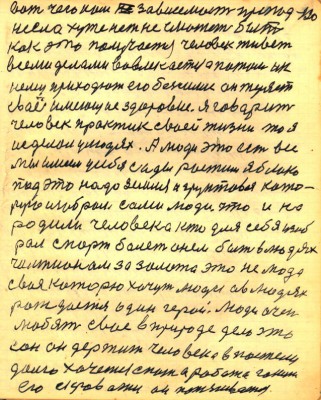 вот чего нам зависемость природ
несла хуже нет не может быть
как это получается человек живет
всеми делами вовлекается а потом ик
нему приходют его болезни он теряет
своё имеющее здоровие. Я говорит
человек практик своей жизни то я
иследил у людях. А люди это есть все
мы имеем у себя сады растим яблоко
под это надо земля и грунтовая кото-
рую избрали сами люди это и на
родили человека кто для себя изоб
рал спорт балет он ем быть в людях
чемпионам за золота это не мода
своя которою хочут люди а в людях
рождается один герой. Люди очен
любят свое в природе дело это
сон он держит человека в постели
долго хочется спат а работа гонит
его с кровати он